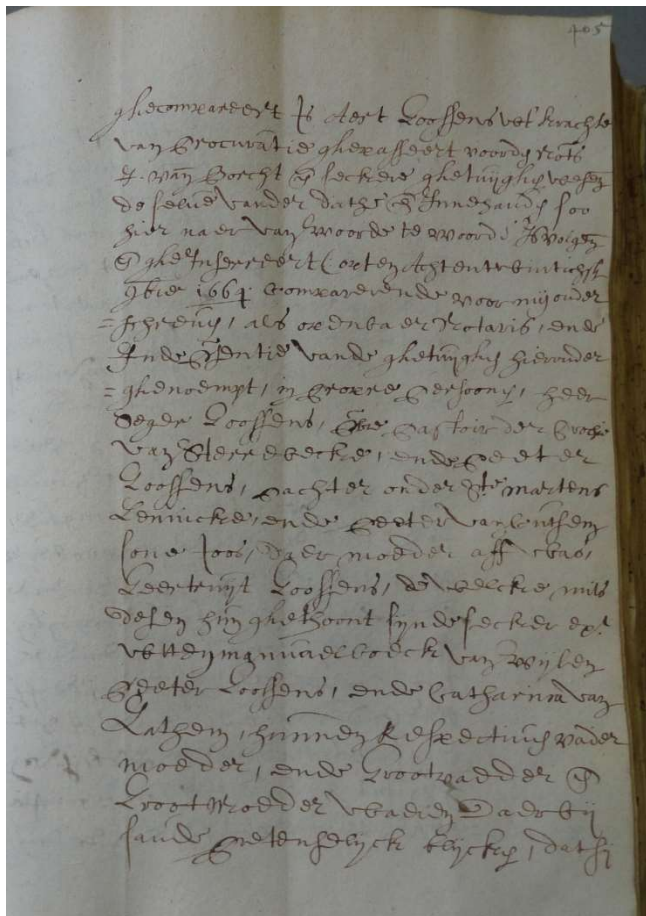 405
ghecompareert Is Aert Goossens vut krachte
van procuratie ghepasseert voor den Nots
van Borcht en seckere ghetuijghen wesen
de selve vander dathe en Innehauden soo
hier naer van woorde te woorde Is volgen
en gheInsereert opten Achtentwintichsten
9bre 1664 Comparerende voor mij onder
=schreven, als openbaer Notaris, ende
Inde pntie vande ghetuijghen hieronder
=ghenoempt, in propre persoonen, heer
Seger Goossens, pbre pastoir der prochie
van Sterrebecke, ende peeter
Goossens, pachter onder Ste Martens
Lennicke, ende peeter van
sone Joos, daer moeder aff was,
Geertruijt Goossens, de welcke mits
desen hun ghethoont sijnde secker ext
vutten manuael boeck van wijlen
peeter Goossens, ende Catharina van
Lathem, hunnen Respective vader
moeder, ende Grootvaeder en
Grootmoeder waeren Daerbij
soude pretenselijck blijcken, dat sij